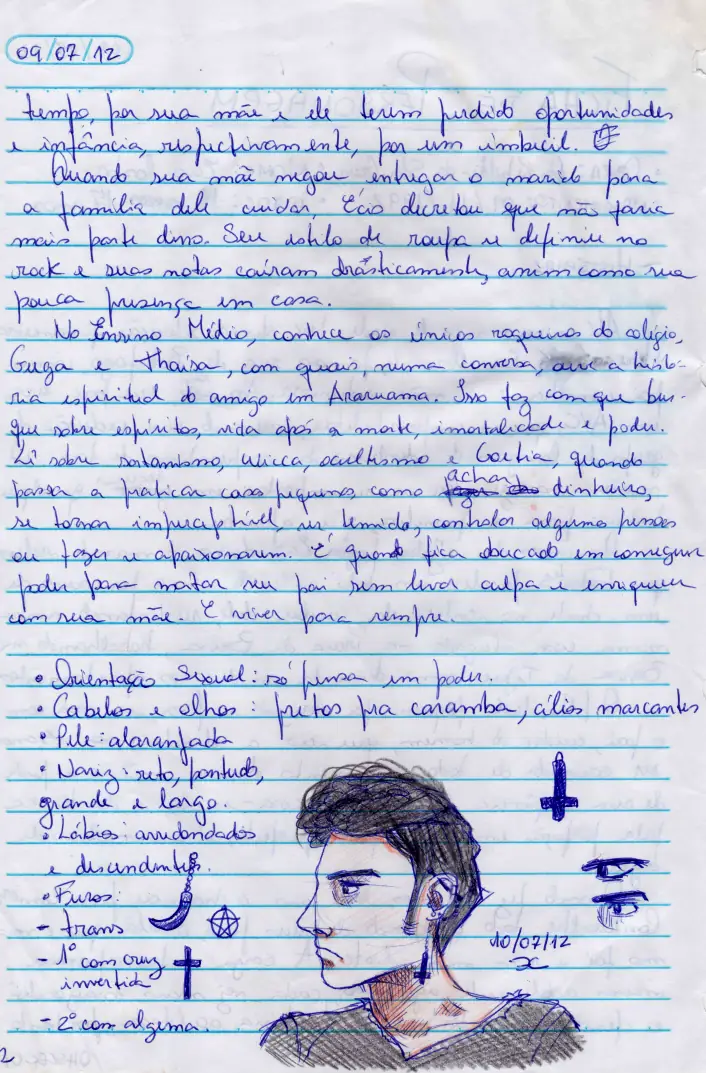 09/07/12
tempo, por sua mãe e ele terem perdido oportunidades
e infância, respectivamente, por um imbecil.
Quando sua mãe negou entregar o marido para
a família dele cuidar, Écio decretou que não faria
mais parte disso. Seu estilo de roupa se define no
rock e suas notas caíram drásticamente, assim como sua
pouca presença em casa.
No Ensino Médio, conhece os únicos roqueiros do colégio,
Guga e Thaísa, com quais, numa conversa, ouve a histó-
ria espiritual do amigo em Araruama. Isso faz com que bus-
que sobre espíritos, vida após a morte, imortalidade e poder.
Lê sobre satanismo, wicca, ocultismo e Goetia, quando
passa a praticar casos pequenos como achar dinheiro,
se tornar imperceptível, ser temido, controlar algumas pessoas
ou fazer se apaixonarem. É quando fica obcecado em conseguir
poder para matar seu pai sem levar culpa e enriquecer
com sua mãe. E viver para sempre.
• Orientação Sexual: só pensa em poder.
• Cabelos e olhos: pretos pra caramba, cílios marcantes
• Pele: alaranjada
• Nariz: reto, pontudo,
grande e largo.
• Lábios: arredondados
e descendentes.
• Furos:
- trans
- 1º com cruz
invertida
- 2º com algema.
10/07/12
2